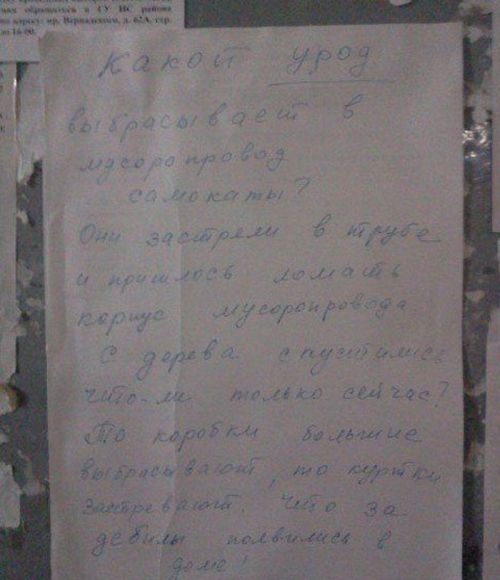 мах обращаться в ГУ ИС района
по адресу: пр. Вернадского, д. 62А, стр.
до 16-00.
Какой урод
выбрасывает в
мусоропровод
самокаты?
Они застряли в трубе
и пришлось ломать
корпус мусоропровода
С дерева спустились
что-ли только сейчас?
То коробки большие
выбрасывают, то куртки
застревают. Что за
дебилы появились в
доме!